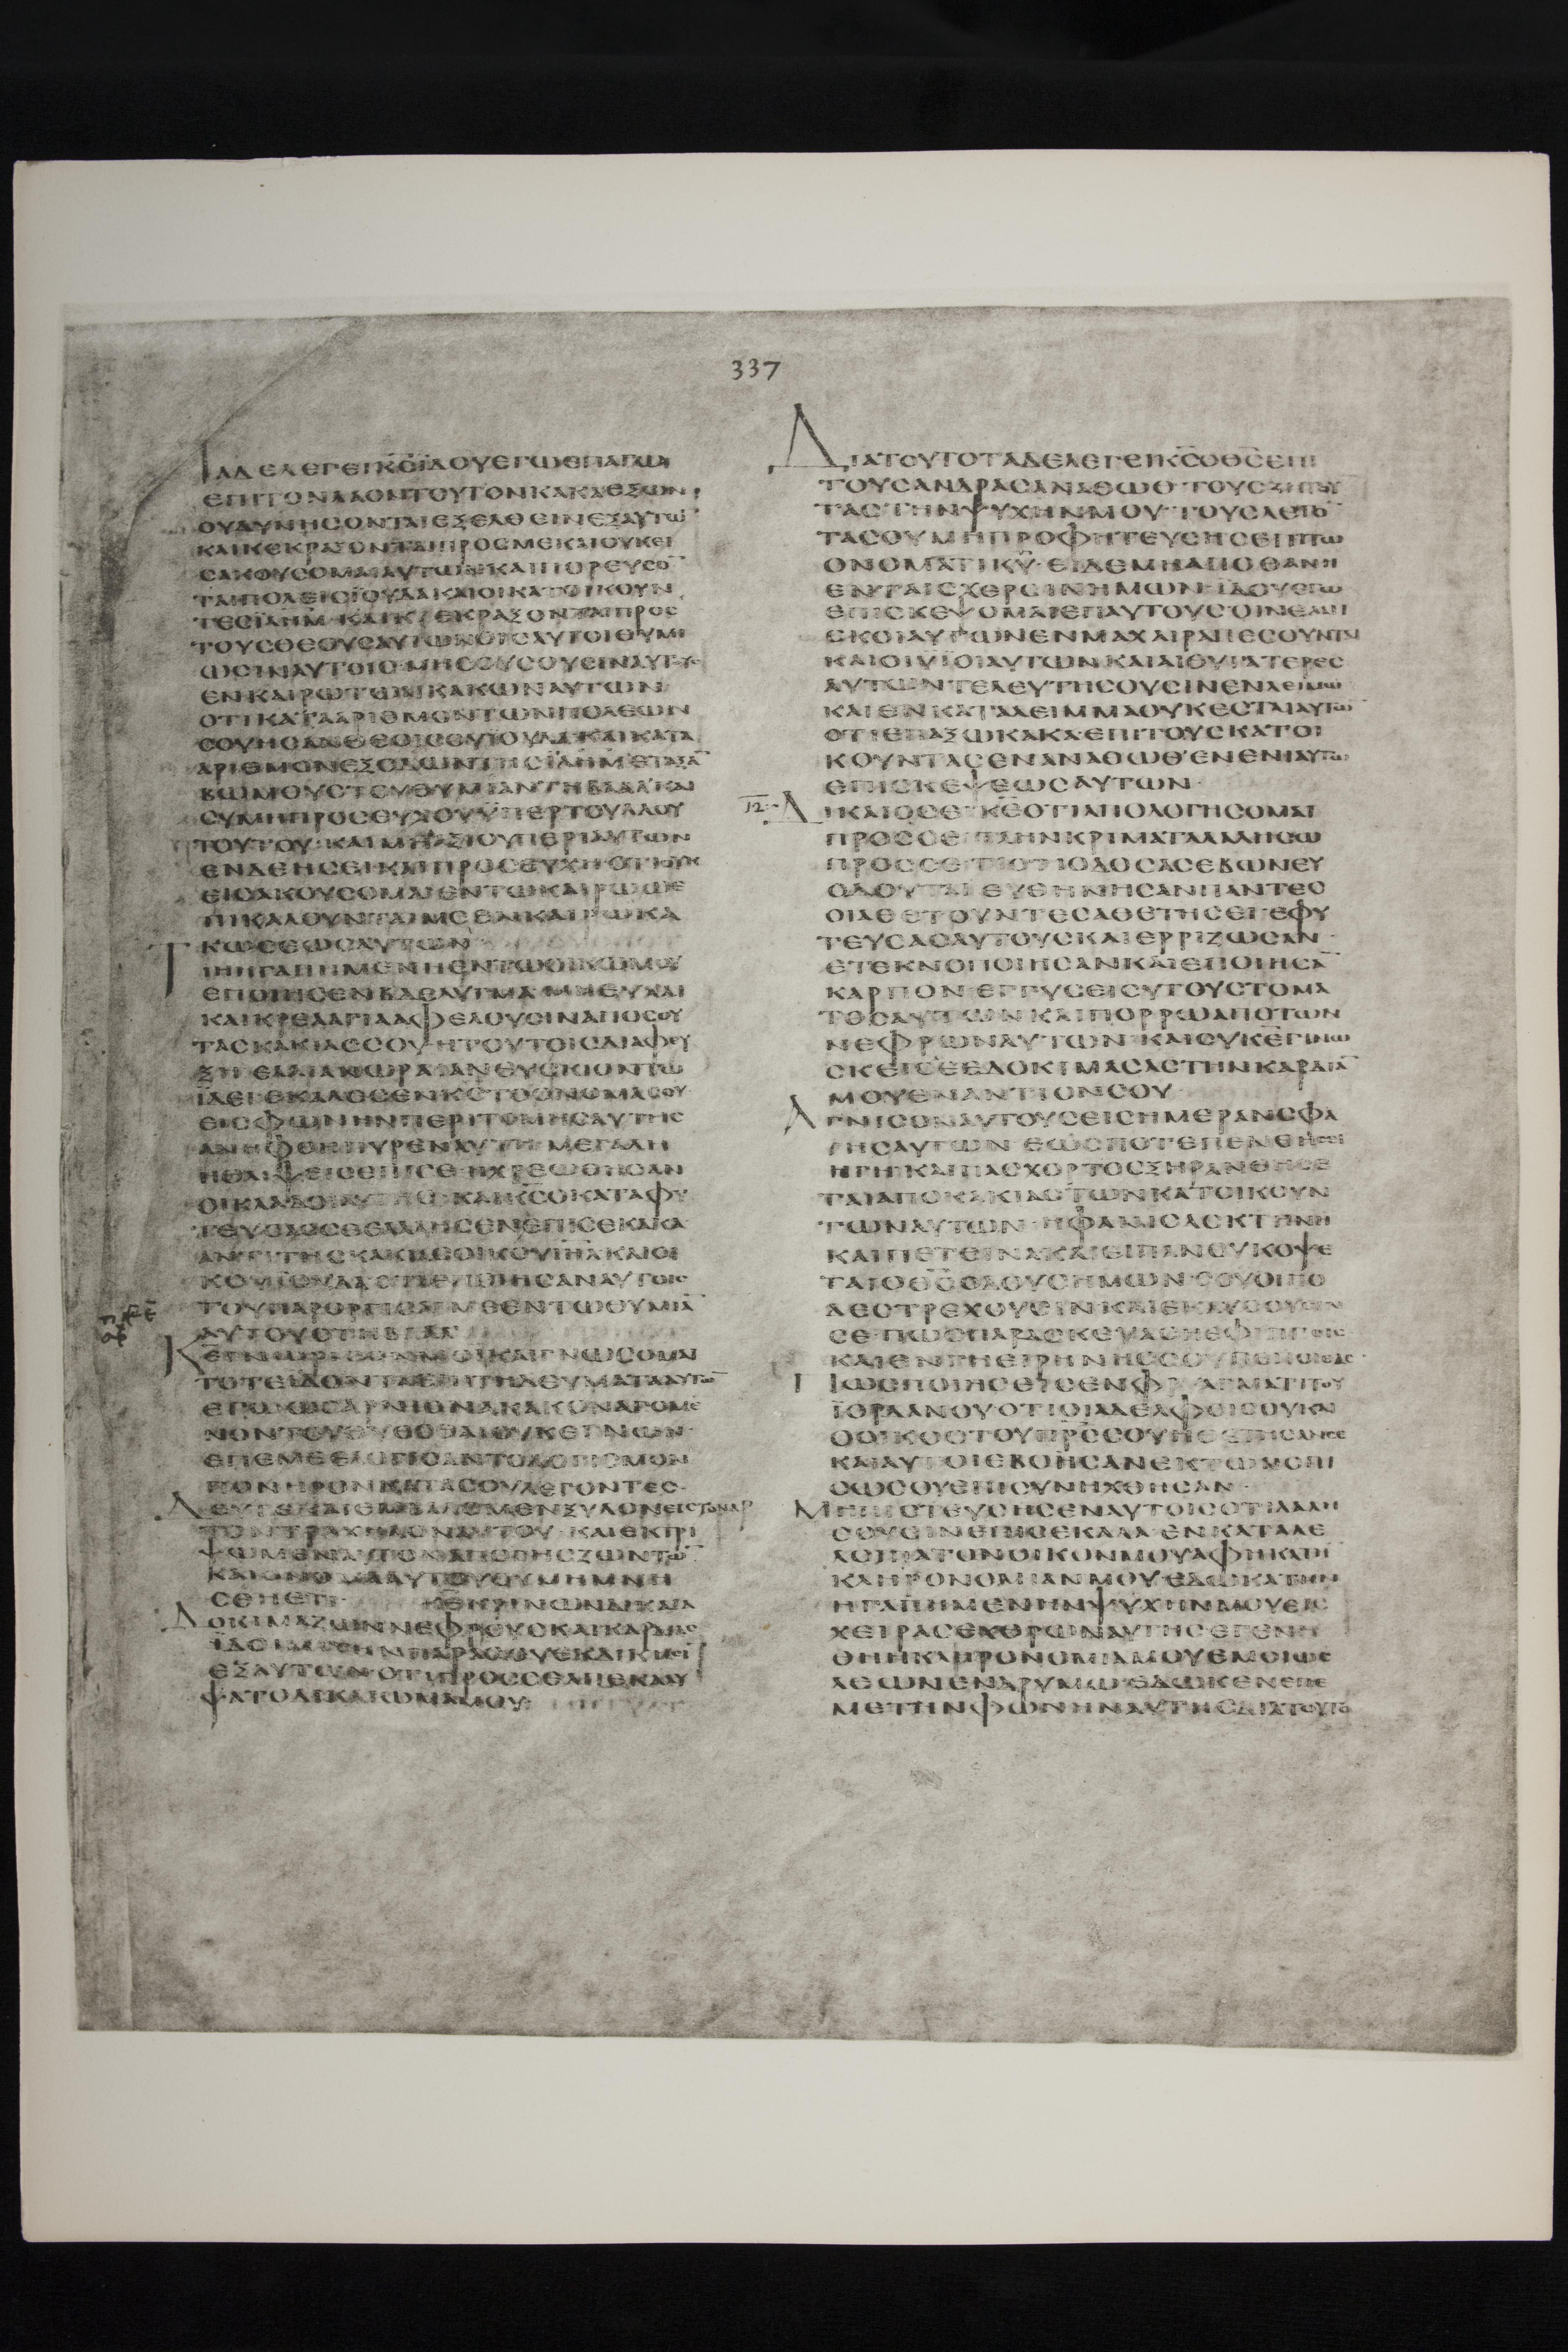 337
ΤΑΔΕΛΕΓΕΙΚΣΪΔΟΥΕΓΩΕΠΑΓΩ
ΕΠΙΤΟΝΛΑΟΝΤΟΥΤΟΝΚΑΚΑΕΞΩΝ
ΟΥΔΥΝΗΣΟΝΤΑΙΕΞΕΛΘΕΙΝΕΞΑΥΤΩ̅
ΚΑΙΚΕΚΡΑΞΟΝΤΑΙΠΡΟΣΜΕΚΑΙΟΥΚΕΙ
ΣΑΚΟΥΣΟΜΑΙΑΥΤΩΝΚΑΙΠΟΡΕΥΣΟ̅
ΤΑΙΠΟΛΕΙΣΪΟΥΔΑΚΑΙΟΙΚΑΤΟΙΚΟΥΝ
ΤΕΣΪΛΗΜ·ΚΑΙΚΕΚΡΑΞΟΝΤΑΙΠΡΟΣ
ΤΟΥΣΘΕΟΥΣΑΥΤΩΝΟΙΣΑΥΤΟΙΘΥΜΙ
ΩΣΙΝΑΥΤΟΙΣ·ΜΗΣΩΣΟΥΣΙΝΑΥΤΟΥΣ
ΕΝΚΑΙΡΩΤΩΝΚΑΚΩΝΑΥΤΩΝ
ΟΤΙΚΑΤΑΑΡΙΘΜΟΝΤΩΝΠΟΛΕΩΝ
ΣΟΥΗΣΑΝΘΕΟΙΣΟΥΙΟΥΔΑΚΑΙΚΑΤΑ
ΑΡΙΘΜΟΝΕΞΟΔΩΝΤΗΣΪΛΗΜΕΤΑΞΑ̅
ΒΩΜΟΥΣΤΟΥΘΥΜΙΑΝΤΗΒΑΑΛΚΑΙ
ΣΥΜΗΠΡΟΣΕΥΧΟΥΫΠΕΡΤΟΥΛΑΟΥ
ΤΟΥΤΟΥ·ΚΑΙΜΗΑΞΙΟΥΠΕΡΙΑΥΤΩΝ
ΕΝΔΕΗΣΕΙΚΑΙΠΡΟΣΕΥΧΗΟΤΙΟΥΚ
ΕΙΣΑΚΟΥΣΟΜΑΙΕΝΤΩΚΑΙΡΩΩΕ
ΠΙΚΑΛΟΥΝΤΑΙΜΕΕΝΚΑΙΡΩΚΑ
ΚΩΣΕΩΣΑΥΤΩΝ
ΤΙΗΗΓΑΠΗΜΕΝΗΕΝΤΩΟΙΚΩΜΟΥ
ΕΠΟΙΗΣΕΝΒΔΕΛΥΓΜΑΜΗΕΥΧΑΙ
ΚΑΙΚΡΕΑΑΓΙΑΑΦΕΛΟΥΣΙΝΑΠΟΣΟΥ
ΤΑΣΚΑΚΙΑΣΣΟΥΗΤΟΥΤΟΙΣΔΙΑΦΕΥ
ΞΗ ΕΛΑΙΑΝΩΡΑΙΑΝΕΥΣΚΙΟΝΤΩ
ΪΔΕΙΕΚΑΛΕΣΕΝΚΣΤΟΟΝΟΜΑΣΟΥ
ΕΙΣΦΩΝΗΝΠΕΡΙΤΟΜΗΣΑΥΤΗΣ
ΑΝΗΦΘΗΠΥΡΕΝΑΥΤΗ ΜΕΓΑΛΗ
ΗΘΛΙΨΕΙΣΕΠΙΣΕ·ΗΧΡΕΩΘΗΣΑΝ
ΟΙΚΛΑΔΟΙΑΥΤΗΣ·ΚΑΙΚΣΟΚΑΤΑΦΥ
ΤΕΥΣΑΣΣΕΕΛΑΛΗΣΕΝΕΠΙΣΕΚΑΚΑ
ΑΝΤΙΤΗΣΚΑΚΙΑΣΟΙΚΟΥΙΗΛΚΑΙΟΙ
ΚΟΥΪΟΥΔΑΟΤΙΕΠΟΙΗΣΑΝΑΥΤΟΙΣ
ΤΟΥΠΑΡΟΡΓΙΣΑΙΜΕΕΝΤΩΘΥΜΙΑ̅
ΑΥΤΟΥΣΤΗΒΑΑΛ
ΚΕΓΝΩΡΙΣΟΝΜΟΙΚΑΙΓΝΩΣΟΜΑΙ
ΤΟΤΕΙΔΟΝΤΑΕΠΙΤΗΔΕΥΜΑΤΑΑΥΤΩ̅
ΕΓΩΩΣΑΡΝΙΟΝΑΚΑΚΟΝΑΓΟΜΕ
ΝΟΝΤΟΥΘΥΕΣΘΑΙΟΥΚΕΓΝΩΝ·
ΕΠΕΜΕΕΛΟΓΙΣΑΝΤΟΛΟΓΙΣΜΟΝ
ΠΟΝΗΡΟΝΚΑΤΑΣΟΥΛΕΓΟΝΤΕΣ·
ΔΕΥΤΕΚΑΙΕΜΒΑΛΩΜΕΝΞΥΛΟΝΕΙΣΤΟΝΑΡ
ΤΟΝΤΡΑΧΗΛΟΝΑΥΤΟΥ·ΚΑΙΕΚΤΡΙ
ΨΩΜΕΝΑΥΤΟΝΑΠΟΓΗΣΖΩΝΤΩ̅
ΚΑΙΟΝΟΜΑΑΥΤΟΥΟΥΜΗΜΝΗ
ΣΘΗΕΤΙ ΚΕΚΡΙΝΩΝΔΙΚΑΙΑ
ΔΟΚΙΜΑΖΩΝΝΕΦΡΟΥΣΚΑΙΚΑΡΔΙΑΣ
ΪΔΟΙΜΙΤΗΝΠΑΡΑΣΟΥΕΚΔΙΚΗΣΙ
ΕΞΑΥΤΩΝΟΤΙΠΡΟΣΣΕΑΠΕΚΑΛΥ
ΨΑΤΟΔΙΚΑΙΩΜΑΜΟΥ
ΔΙΑΤΟΥΤΟΤΑΔΕΛΕΓΕΙΚΣΟΘΣΕΠΙ
ΤΟΥΣΑΝΔΡΑΣΑΝΑΘΩΘ·ΤΟΥΣΖΗΤΟΥ̅
ΤΑΣΤΗΝΨΥΧΗΝΜΟΥ·ΤΟΥΣΛΕΓΟ̅
ΤΑΣΟΥΜΗΠΡΟΦΗΤΕΥΣΗΣΕΠΙΤΩ
ΟΝΟΜΑΤΙΚΥ·ΕΙΔΕΜΗΑΠΟΘΑΝΗ
ΕΝΤΑΙΣΧΕΡΣΙΝΗΜΩΝ·ΪΔΟΥΕΓΩ
ΕΠΙΣΚΕΨΟΜΑΙΕΠΑΥΤΟΥΣ·ΟΙΝΕΑΝΙ
ΣΚΟΙΑΥΤΩΝΕΝΜΑΧΑΙΡΑΠΕΣΟΥΝΤΑΙ
ΚΑΙΟΙΫΪΟΙΑΥΤΩΝΚΑΙΑΙΘΥΓΑΤΕΡΕΣ
ΑΥΤΩΝΤΕΛΕΥΤΗΣΟΥΣΙΝΕΝΛΕΙΜΩ
ΚΑΙΕΝΚΑΤΑΛΕΙΜΜΑΟΥΚΕΣΤΑΙΑΥΤΩ̅
ΟΤΙΕΠΑΞΩΚΑΚΑ·ΕΠΙΤΟΥΣΚΑΤΟΙ
ΚΟΥΝΤΑΣΕΝΑΝΑΘΩΘ·ΕΝΕΝΙΑΥΤΩ
ΕΠΙΣΚΕΨΕΩΣΑΥΤΩΝ·
12 ΔΙΚΑΙΟΣΕΙΚΕΟΤΙΑΠΟΛΟΓΗΣΟΜΑΙ
ΠΡΟΣΣΕ ΠΛΗΝΚΡΙΜΑΤΑΛΑΛΗΣΩ
ΠΡΟΣΣΕ·ΤΙΟΤΙΟΔΟΣΑΣΕΒΩΝΕΥ
ΟΔΟΥΤΑΙ ΕΥΘΗΝΗΣΑΝΠΑΝΤΕΣ
ΟΙΑΘΕΤΟΥΝΤΕΣΑΘΕΤΗΣΕΙ·ΕΦΥ
ΤΕΥΣΑΣΑΥΤΟΥΣΚΑΙΕΡΡΙΖΩΣΑΝ·
ΕΤΕΚΝΟΠΟΙΗΣΑΝΚΑΙΕΠΟΙΗΣΑ̅
ΚΑΡΠΟΝ·ΕΓΓΥΣΕΙΣΥΤΟΥΣΤΟΜΑ
ΤΟΣΑΥΤΩΝΚΑΙΠΟΡΡΩΑΠΟΤΩΝ
ΝΕΦΡΩΝΑΥΤΩΝ·ΚΑΙΣΥΚΕΓΙΝΩ
ΣΚΕΙΣΕΔΟΚΙΜΑΣΑΣΤΗΝΚΑΡΔΙΑ̅
ΜΟΥΕΝΑΝΤΙΟΝΣΟΥ
ΑΓΝΙΣΟΝΑΥΤΟΥΣΕΙΣΗΜΕΡΑΝΣΦΑ
ΓΗΣΑΥΤΩΝ ΕΩΣΠΟΤΕΠΕΝΘΗΣΕΙ
ΗΓΗΚΑΙΠΑΣΧΟΡΤΟΣΞΗΡΑΝΘΗΣΕ
ΤΑΙΑΠΟΚΑΚΙΑΣΤΩΝΚΑΤΟΙΚΟΥΝ
ΤΩΝΑΥΤΩΝ ΗΦΑΝΙΣΑΣΚΤΗΝΗ
ΚΑΙΠΕΤΕΙΝΑΚΑΙΕΙΠΑΝΟΥΚΟΨΕ
ΤΑΙΟΘΣΟΔΟΥΣΗΜΩΝ·ΣΟΥΟΙΠΟ
ΔΕΣΤΡΕΧΟΥΣΙΝΚΑΙΕΚΛΥΣΟΥΣΙΝ
ΣΕ·ΠΩΣΠΑΡΑΣΚΕΥΑΣΗΕΦΙΠΠΟΙΣ
ΚΑΙΕΝΓΗΕΙΡΗΝΗΣΣΟΥΠΕΠΟΙΘΑΣ·
ΠΩΣΠΟΙΗΣΕΙΣΕΝΦΡΥΑΓΜΑΤΙΤΟΥ
ΪΟΡΔΑΝΟΥΟΤΙΟΙΑΔΕΛΦΟΙΣΟΥΚΑΙ
ΟΟΙΚΟΣΤΟΥΠΡΣΣΟΥΗΘΕΤΗΣΑΝΣΕ
ΚΑΙΑΥΤΟΙΕΒΟΗΣΑΝΕΚΤΩΝΟΠΙ
ΣΩΣΟΥΕΠΙΣΥΝΗΧΘΗΣΑΝ·
ΜΗΠΙΣΤΕΥΣΗΣΕΝΑΥΤΟΙΣΟΤΙΛΑΛΗ
ΣΟΥΣΙΝΕΠΙΣΕΚΑΛΑ·ΕΝΚΑΤΑΛΕ
ΛΟΙΠΑΤΟΝΟΙΚΟΝΜΟΥΑΦΗΚΑΤΗ̅
ΚΛΗΡΟΝΟΜΙΑΝΜΟΥΕΔΩΚΑΤΗΝ
ΗΓΑΠΗΜΕΝΗΝΨΥΧΗΝΜΟΥΕΙΣ
ΧΕΙΡΑΣΕΧΘΡΩΝΑΥΤΗΣΕΓΕΝΗ
ΘΗΗΚΛΗΡΟΝΟΜΙΑΜΟΥΕΜΟΙΩΣ
ΛΕΩΝΕΝΔΡΥΜΩ·ΕΔΩΚΕΝΕΠΕ
ΜΕΤΗΝΦΩΝΗΝΑΥΤΗΣΔΙΑΤΟΥΤΟ